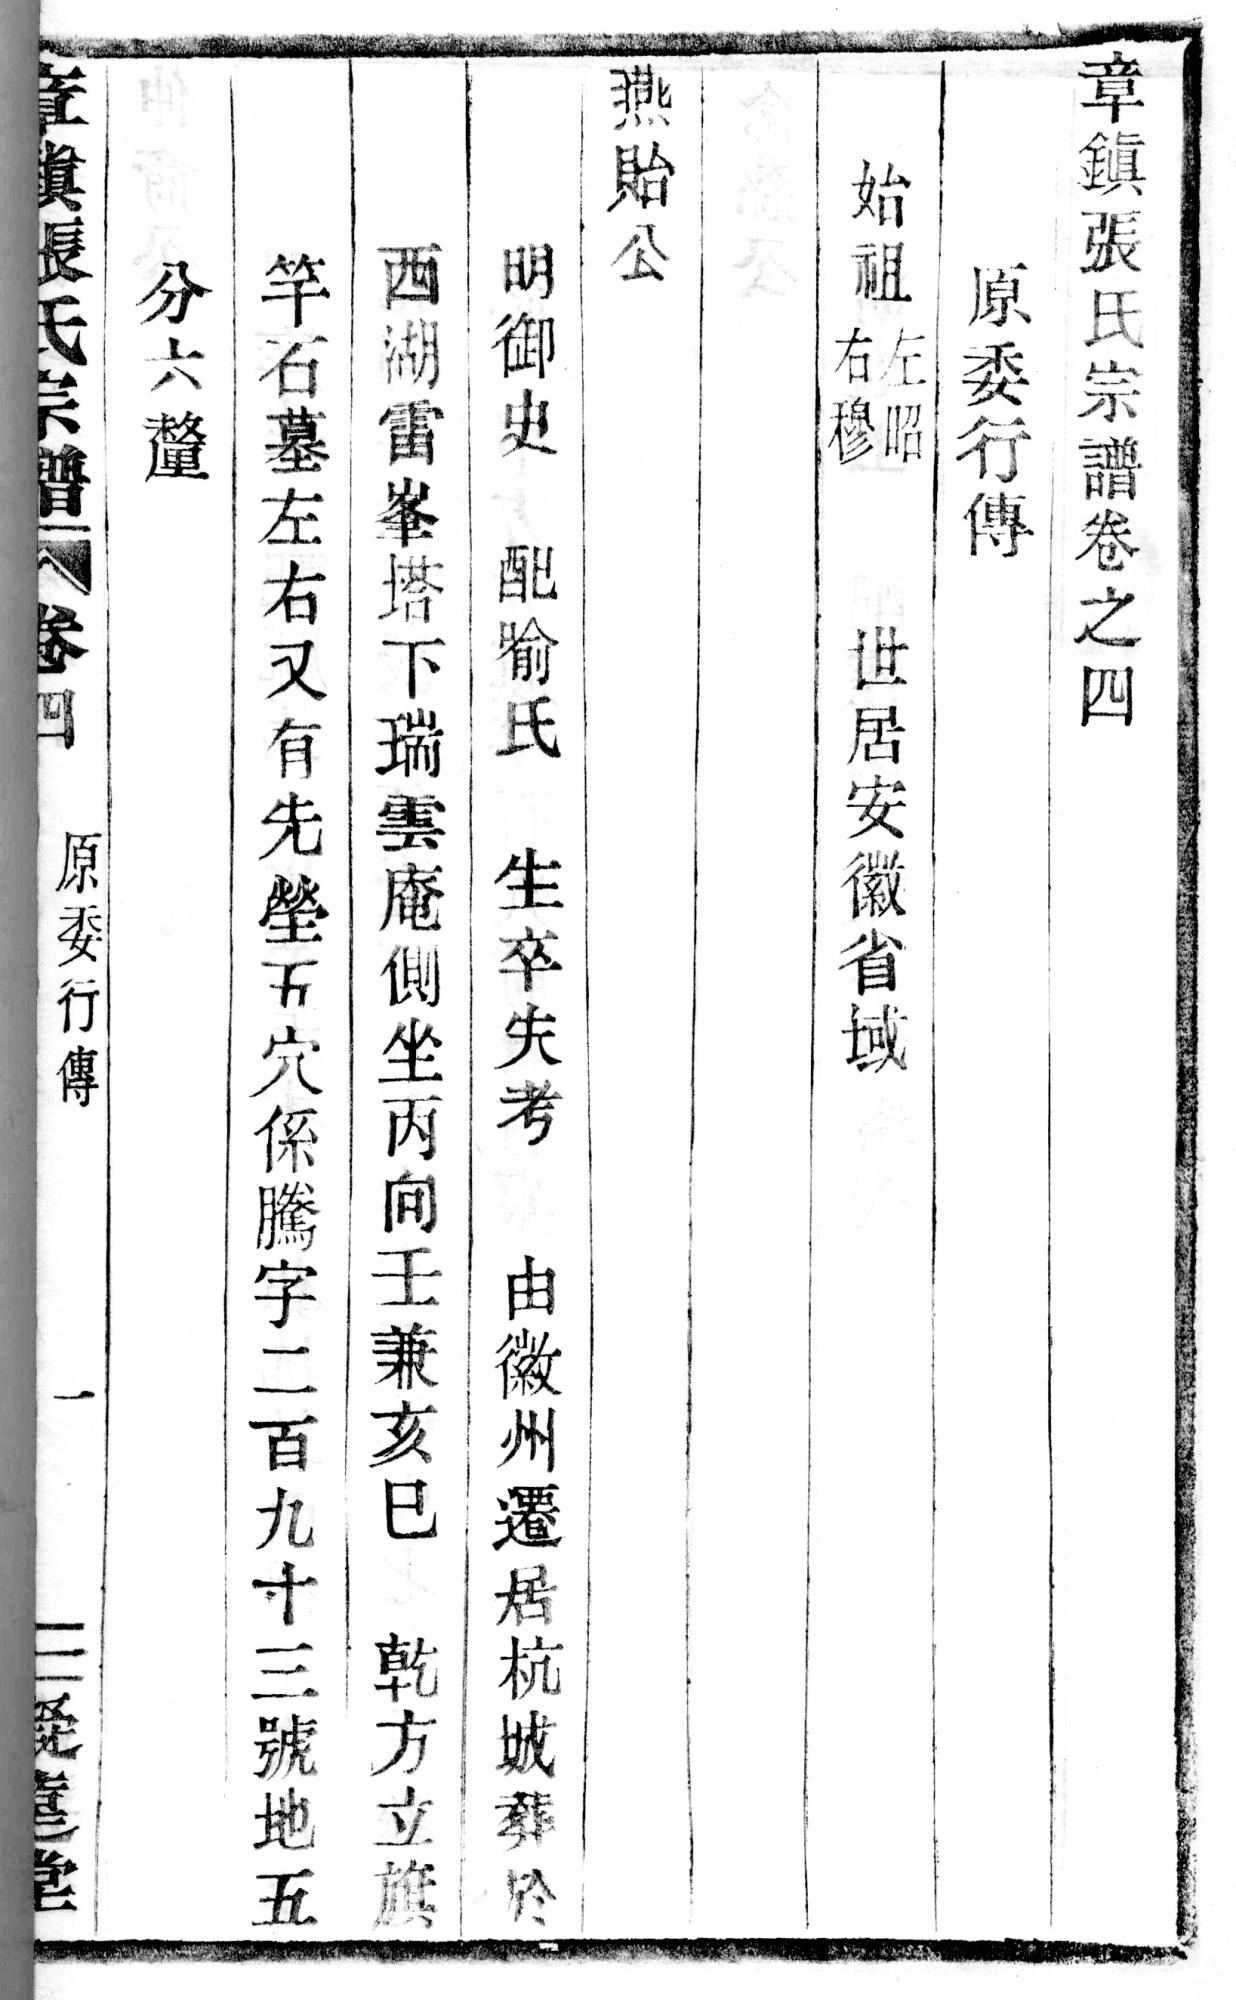 章鎮張氏宗譜卷之四
原委行傳
始祖 左昭 右穆 世居安徽省域
燕貽公
明御史 配喻氏 生卒失考 由徽州遷居杭城葬於
西湖雷峯塔下瑞雲庵側坐丙向壬兼亥巳 乾方立旗
竿石墓左右又有先塋五穴係騰字二百九十三號地五
分六釐
章鎮張氏宗譜 卷四 原委行傳 一 堂